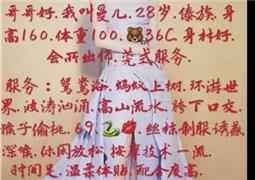 哥哥好.我叫曼儿.28岁.傣族.身
高160.体重100.🐻36C.身材好.
会所出师.莞式服务.
服务：鸳鸯浴.蚂蚁上树.环游世
界.波涛汹涌.高山流水.胯下口交.
猴子偷桃.69.🐍💋.丝袜制服诱惑
深喉.休闲放松.按摩技术一流.
时间足.温柔体贴.配合度高.